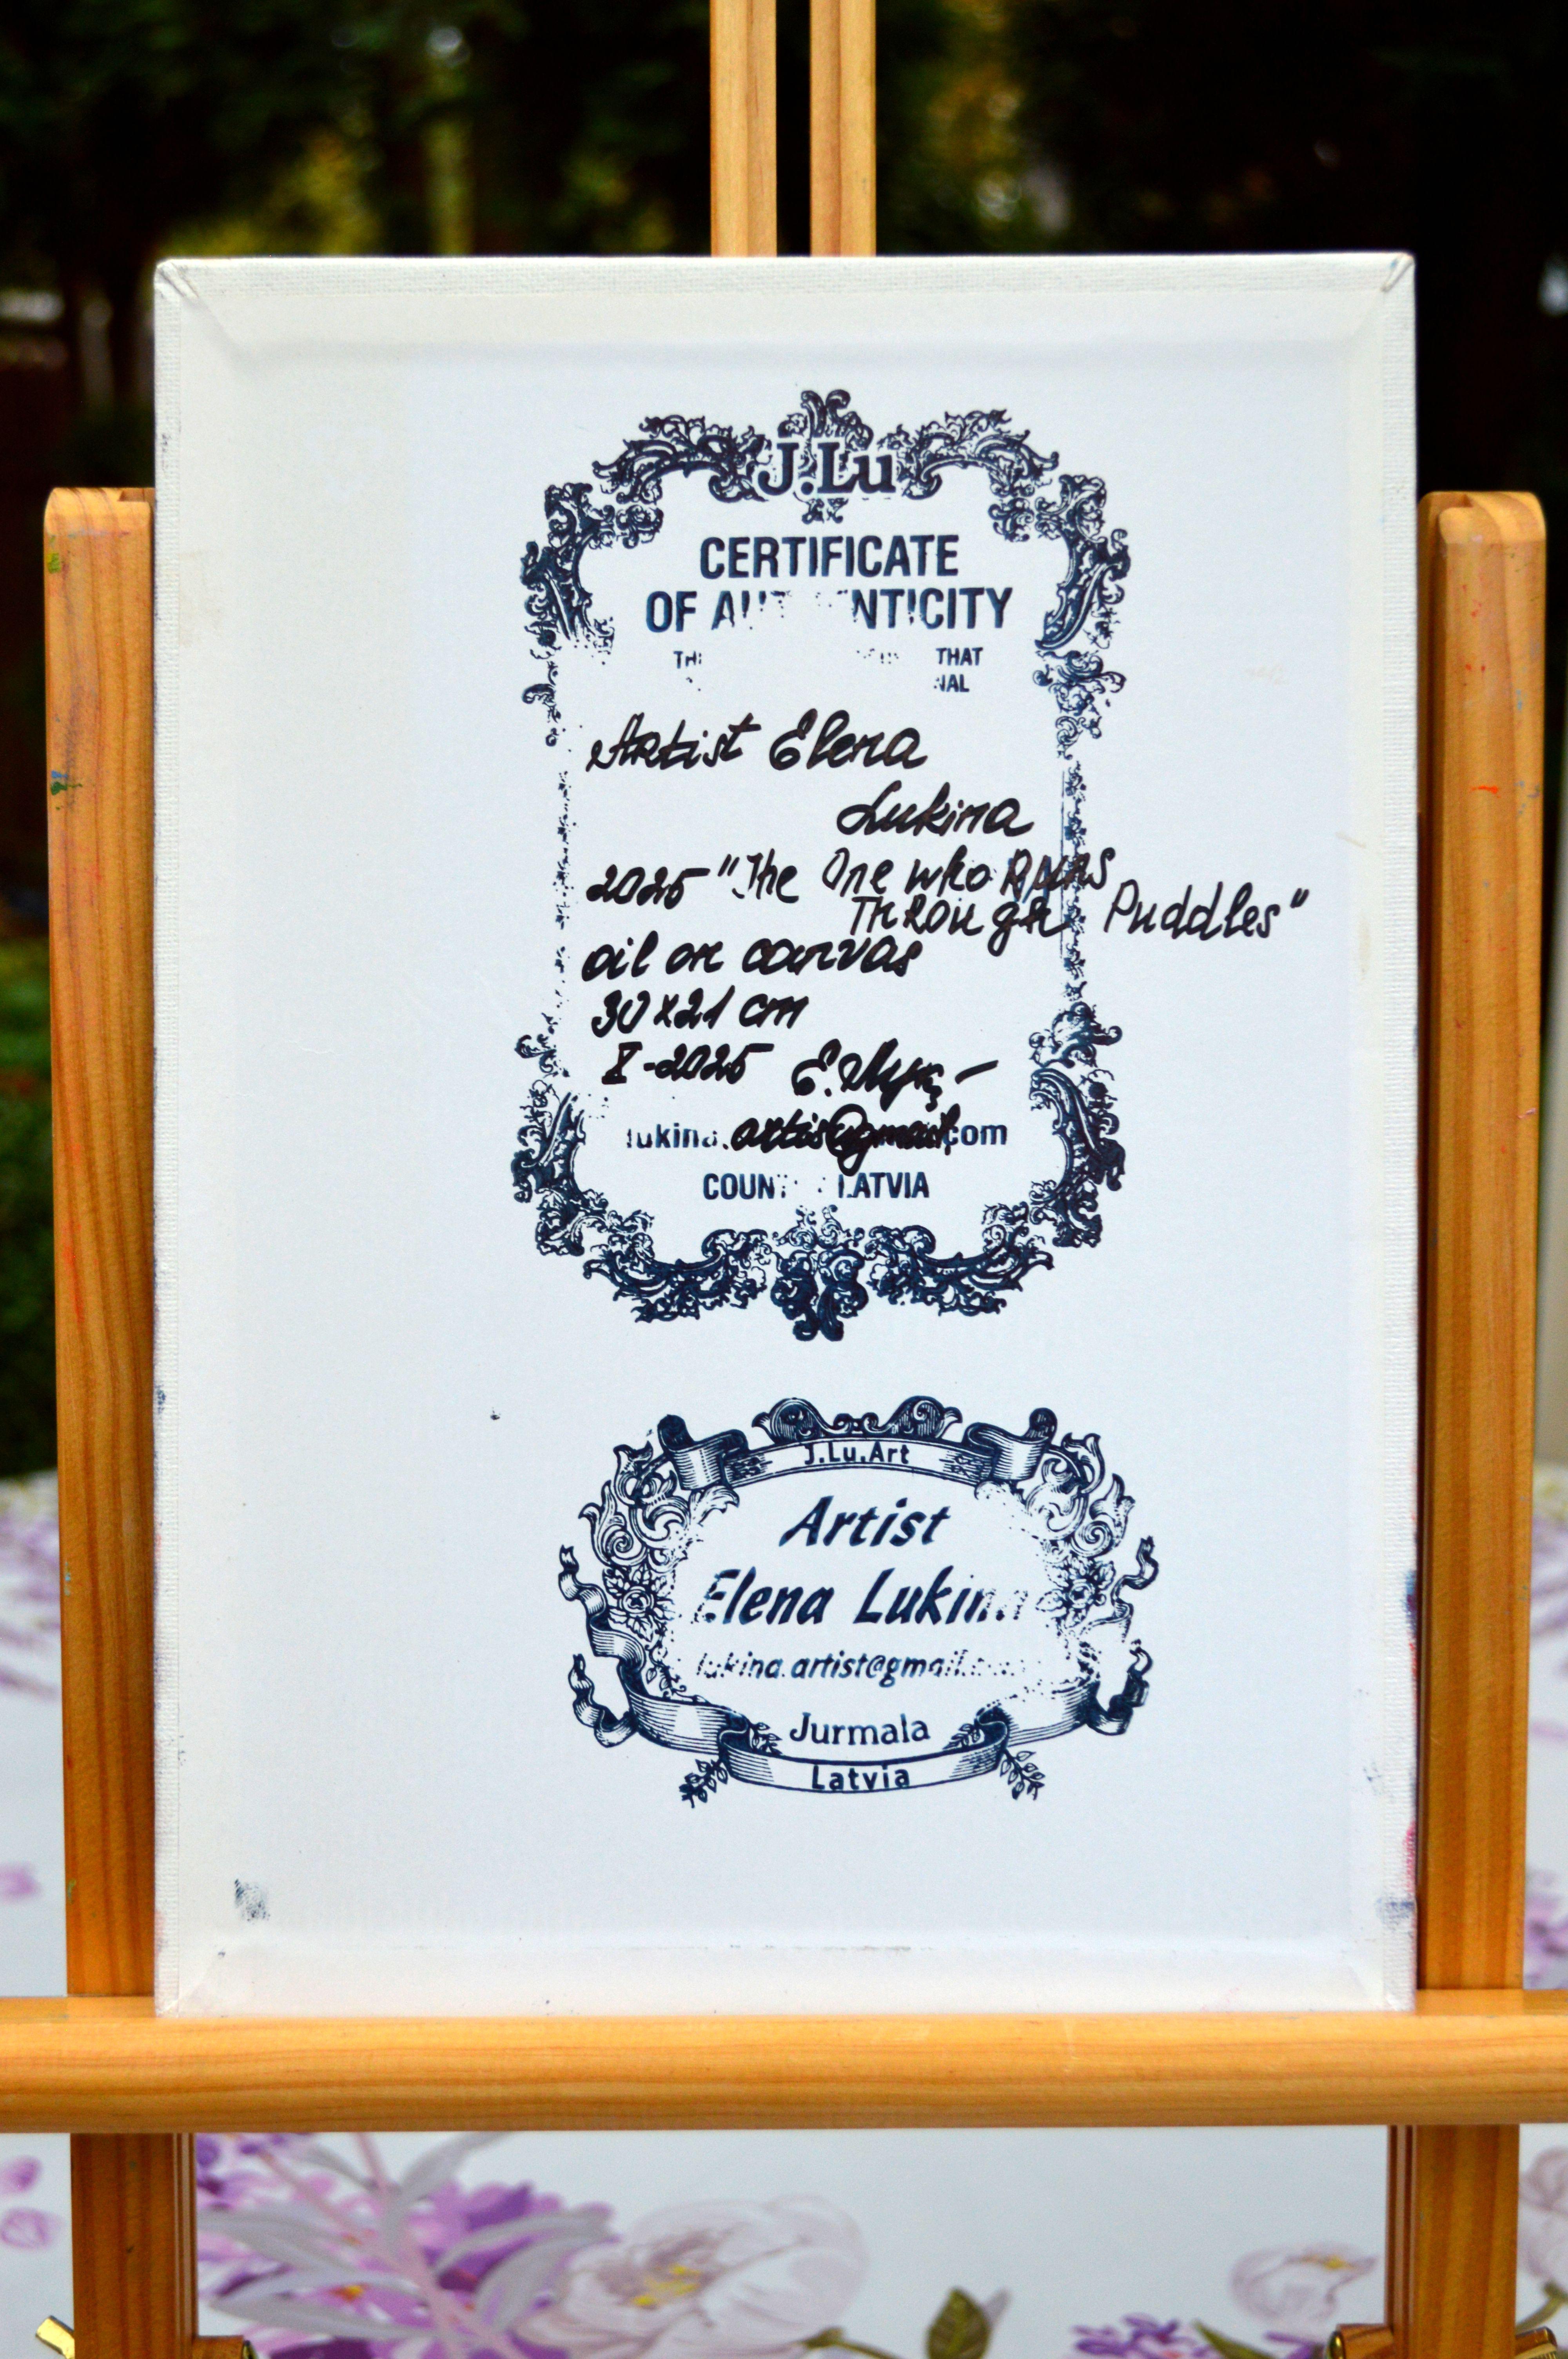 J.Lu
CERTIFICATE
OF AUTHENTICITY
THAT
Artist Elena
Lukina
2025 "The One who Runs
Through Puddles"
oil on canvas
30x21 cm
X-2025
lukina.artist@gmail.com
COUNTRY LATVIA
J.Lu.Art
Artist
Elena Lukina
lukina.artist@gmail.com
Jurmala
Latvia